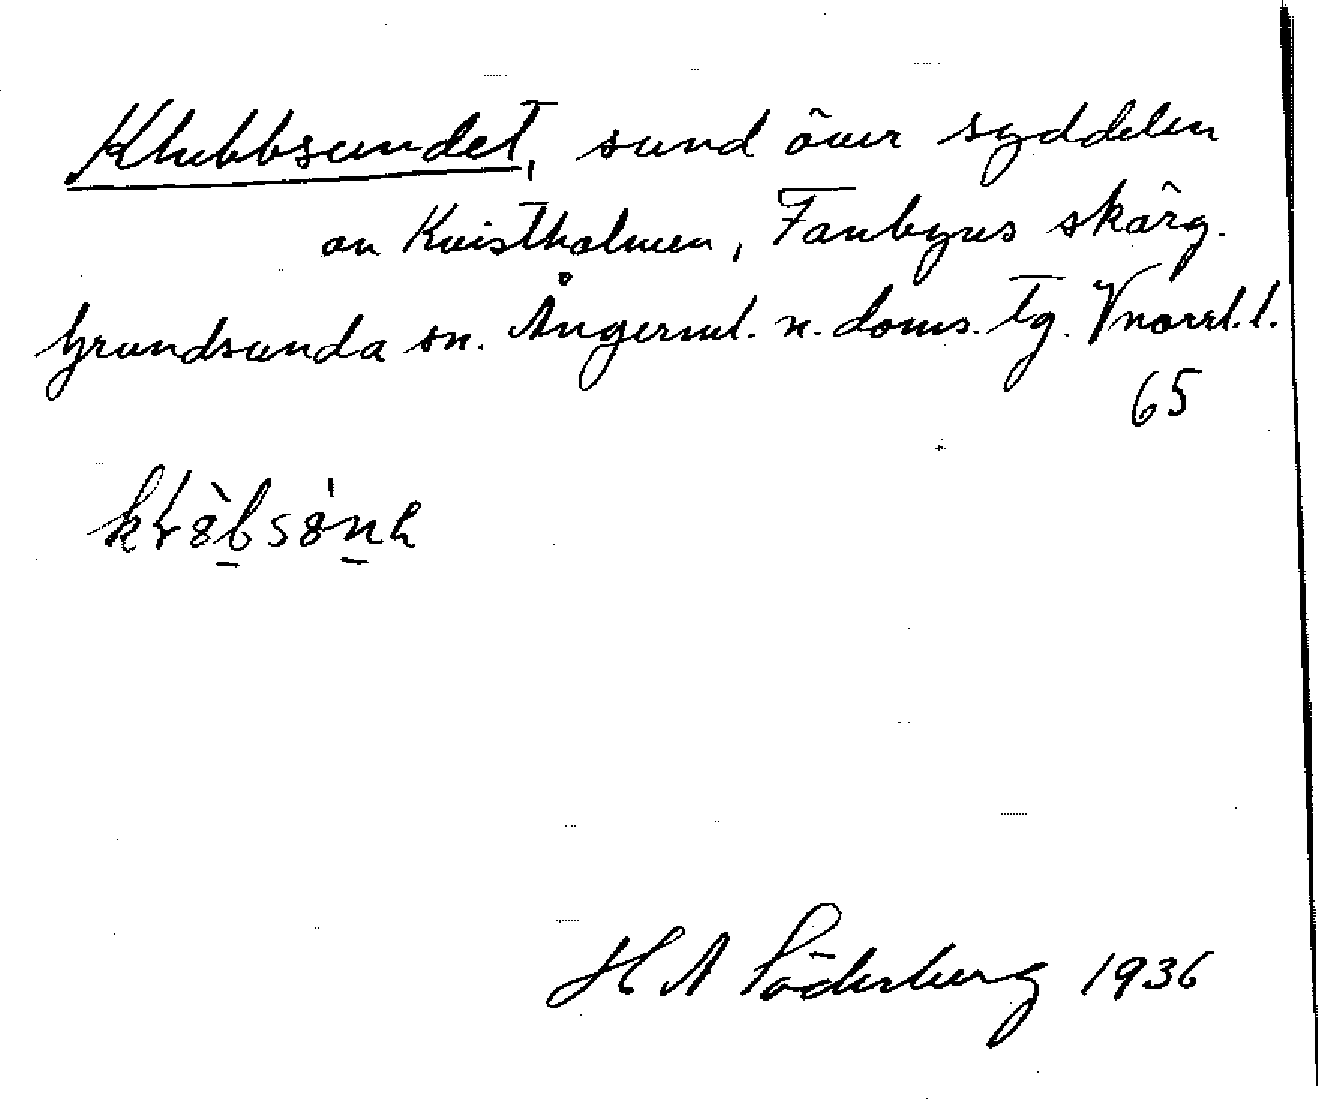 Klubbsundet, sund över syddelen
on Kvistholmen, Fanbyns skärg.
Grundsunda sn. Ångerml. n. doms. tg. Vnorrl. l.
65
H A Söderberg 1936